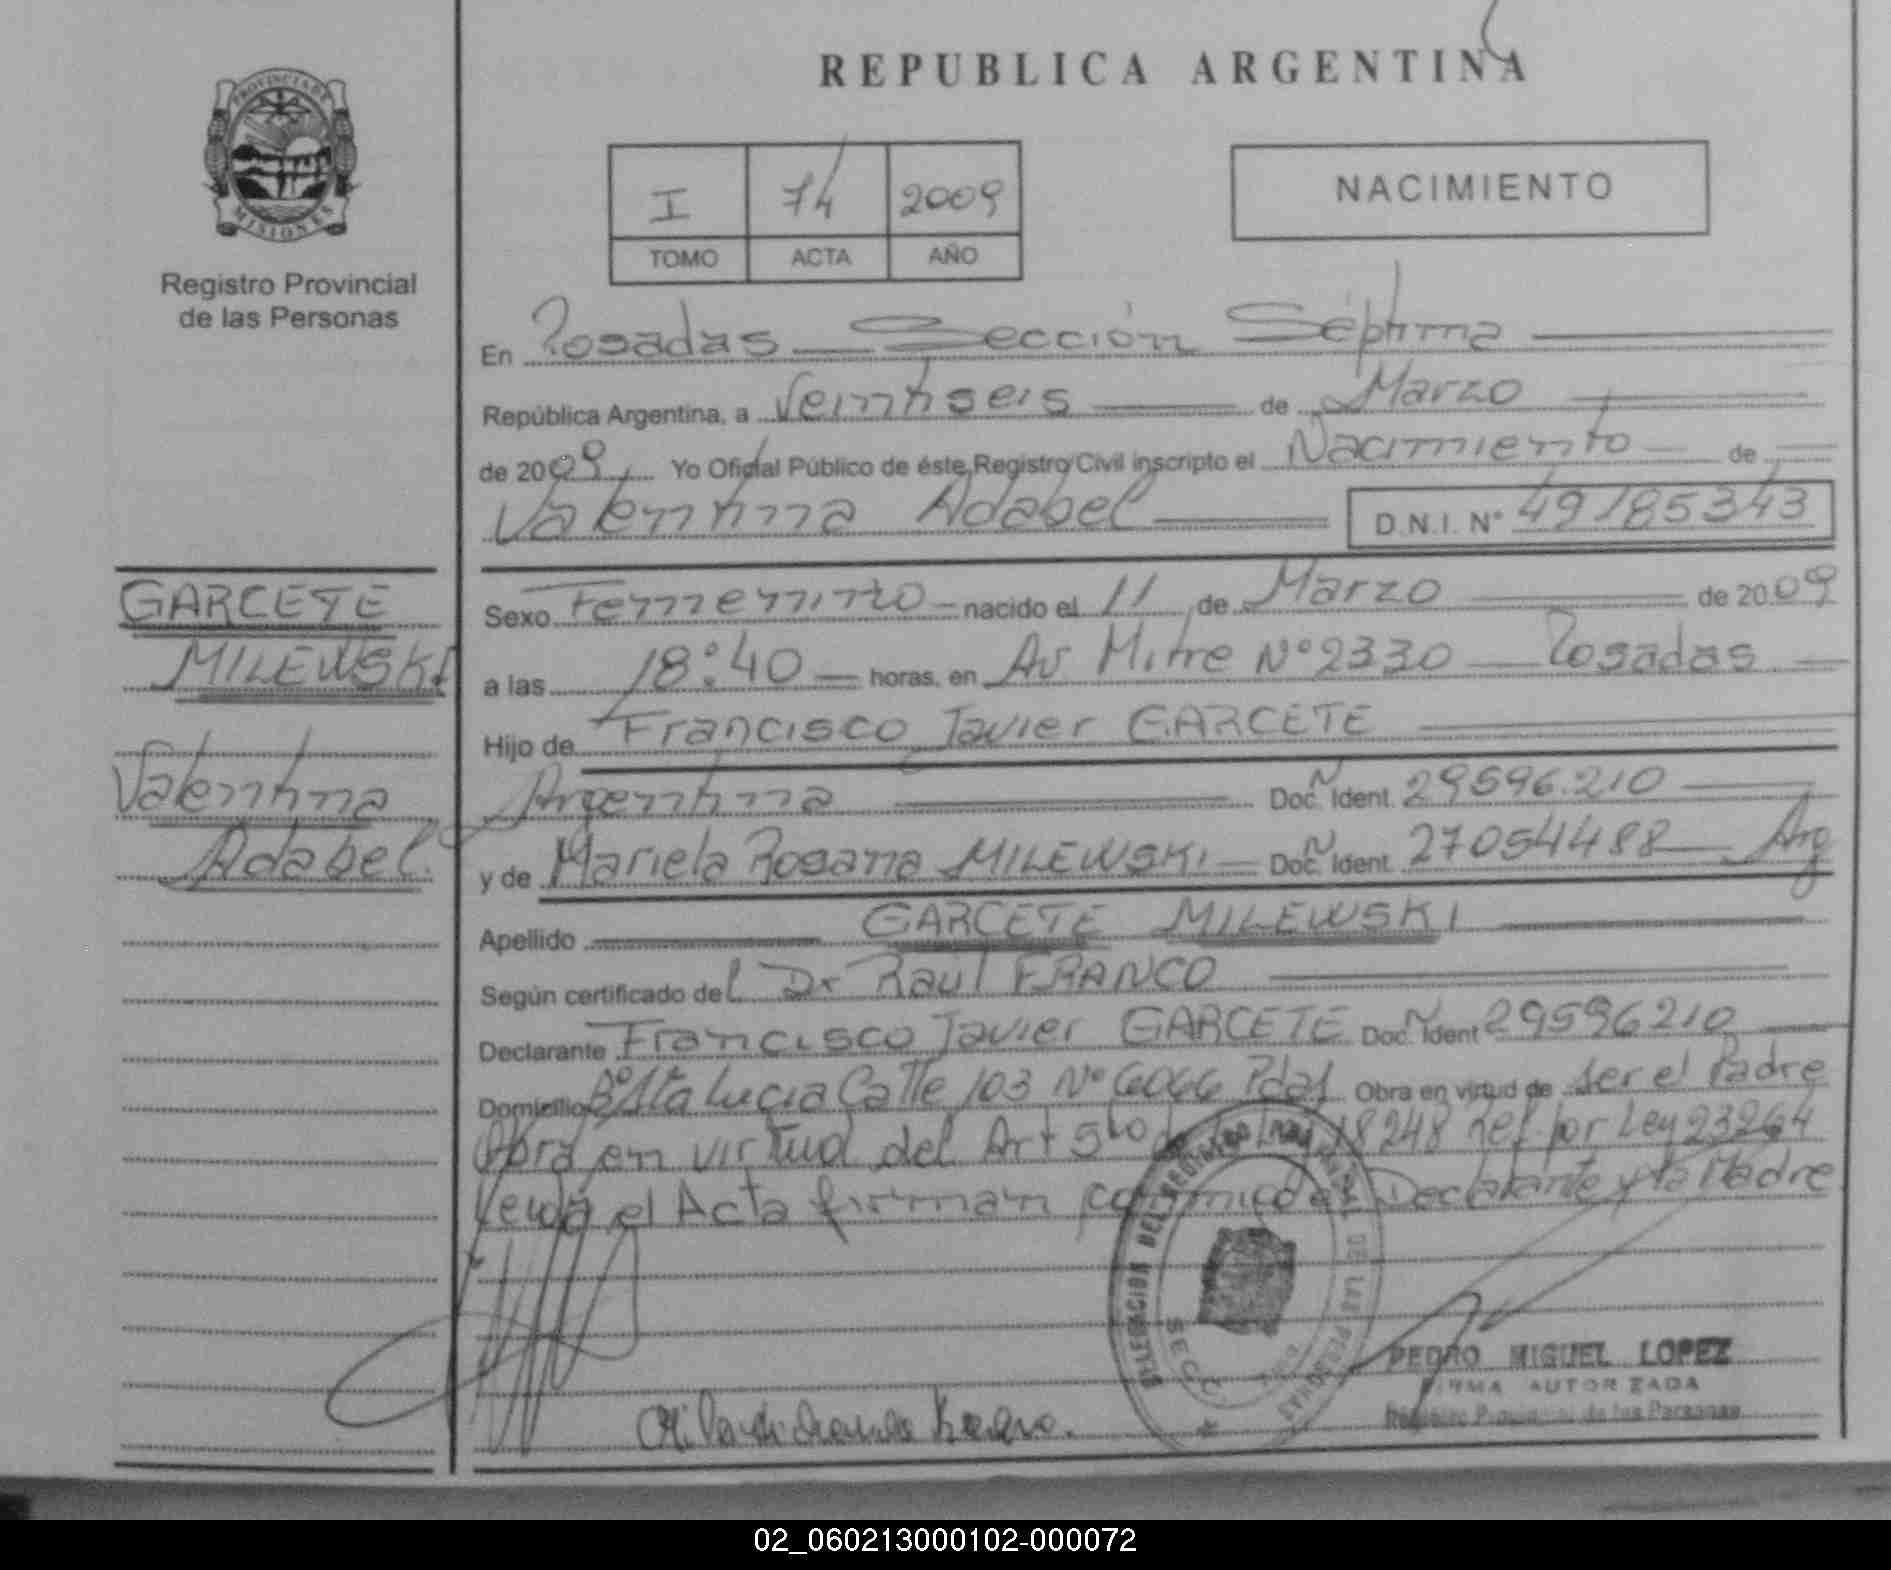 PROVINCIA DE
MISIONES
Registro Provincial
de las Personas
GARCETE
MILEWSKI
Valentina
Adabel.
REPUBLICA ARGENTINA
I 74 2009
TOMO ACTA AÑO
NACIMIENTO
En Posadas Sección Séptima
República Argentina, a Veintiseis de Marzo
de 2009 Yo Oficial Público de éste Registro Civil inscripto el Nacimiento de
Valentina Adabel D.N.I. N° 49185343
Sexo Femenino nacido el 11 de Marzo de 2009
a las 18:40 horas, en Av Mitre N°2330 Posadas
Hijo de Francisco Javier GARCETE
Argentina Doc. Ident. 29596.210
y de Mariela Rosana MILEWSKI Doc. Ident. 27054488 Arg
Apellido GARCETE MILEWSKI
Según certificado del Dr Raúl FRANCO
Declarante Francisco Javier GARCETE Doc. Ident 29596210
Domicilio B° Sta Lucia Calle 103 N° 6066 Pdas Obra en virtud de ser el Padre
Obra en virtud del Art 5to de la Ley 18248 Ref. por Ley 23264
Leida el Acta firman conmigo el Declarante y la Madre
DELEGACION DEL REGISTRO PROVINCIAL DE LAS PERSONAS
SECC.
PEDRO MIGUEL LOPEZ
FIRMA AUTORIZADA
Registro Provincial de las Personas
02_060213000102-000072